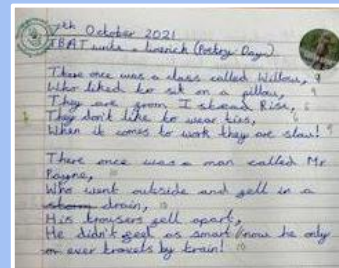 7th October 2021
TBAT write a limerick (Poetry Day)
There once was a class called Willow, 9
Who liked to sit on a pillow, 9
They are from Istead Rise, 6
They don't like to wear ties, 6
When it comes to work they are slow! 9
There once was a man called Mr
Payne, 10
Who went outside and fell in a
drain, 10
His trousers fell apart,
He didn't feel as smart, now he only
ever travels by train! 10